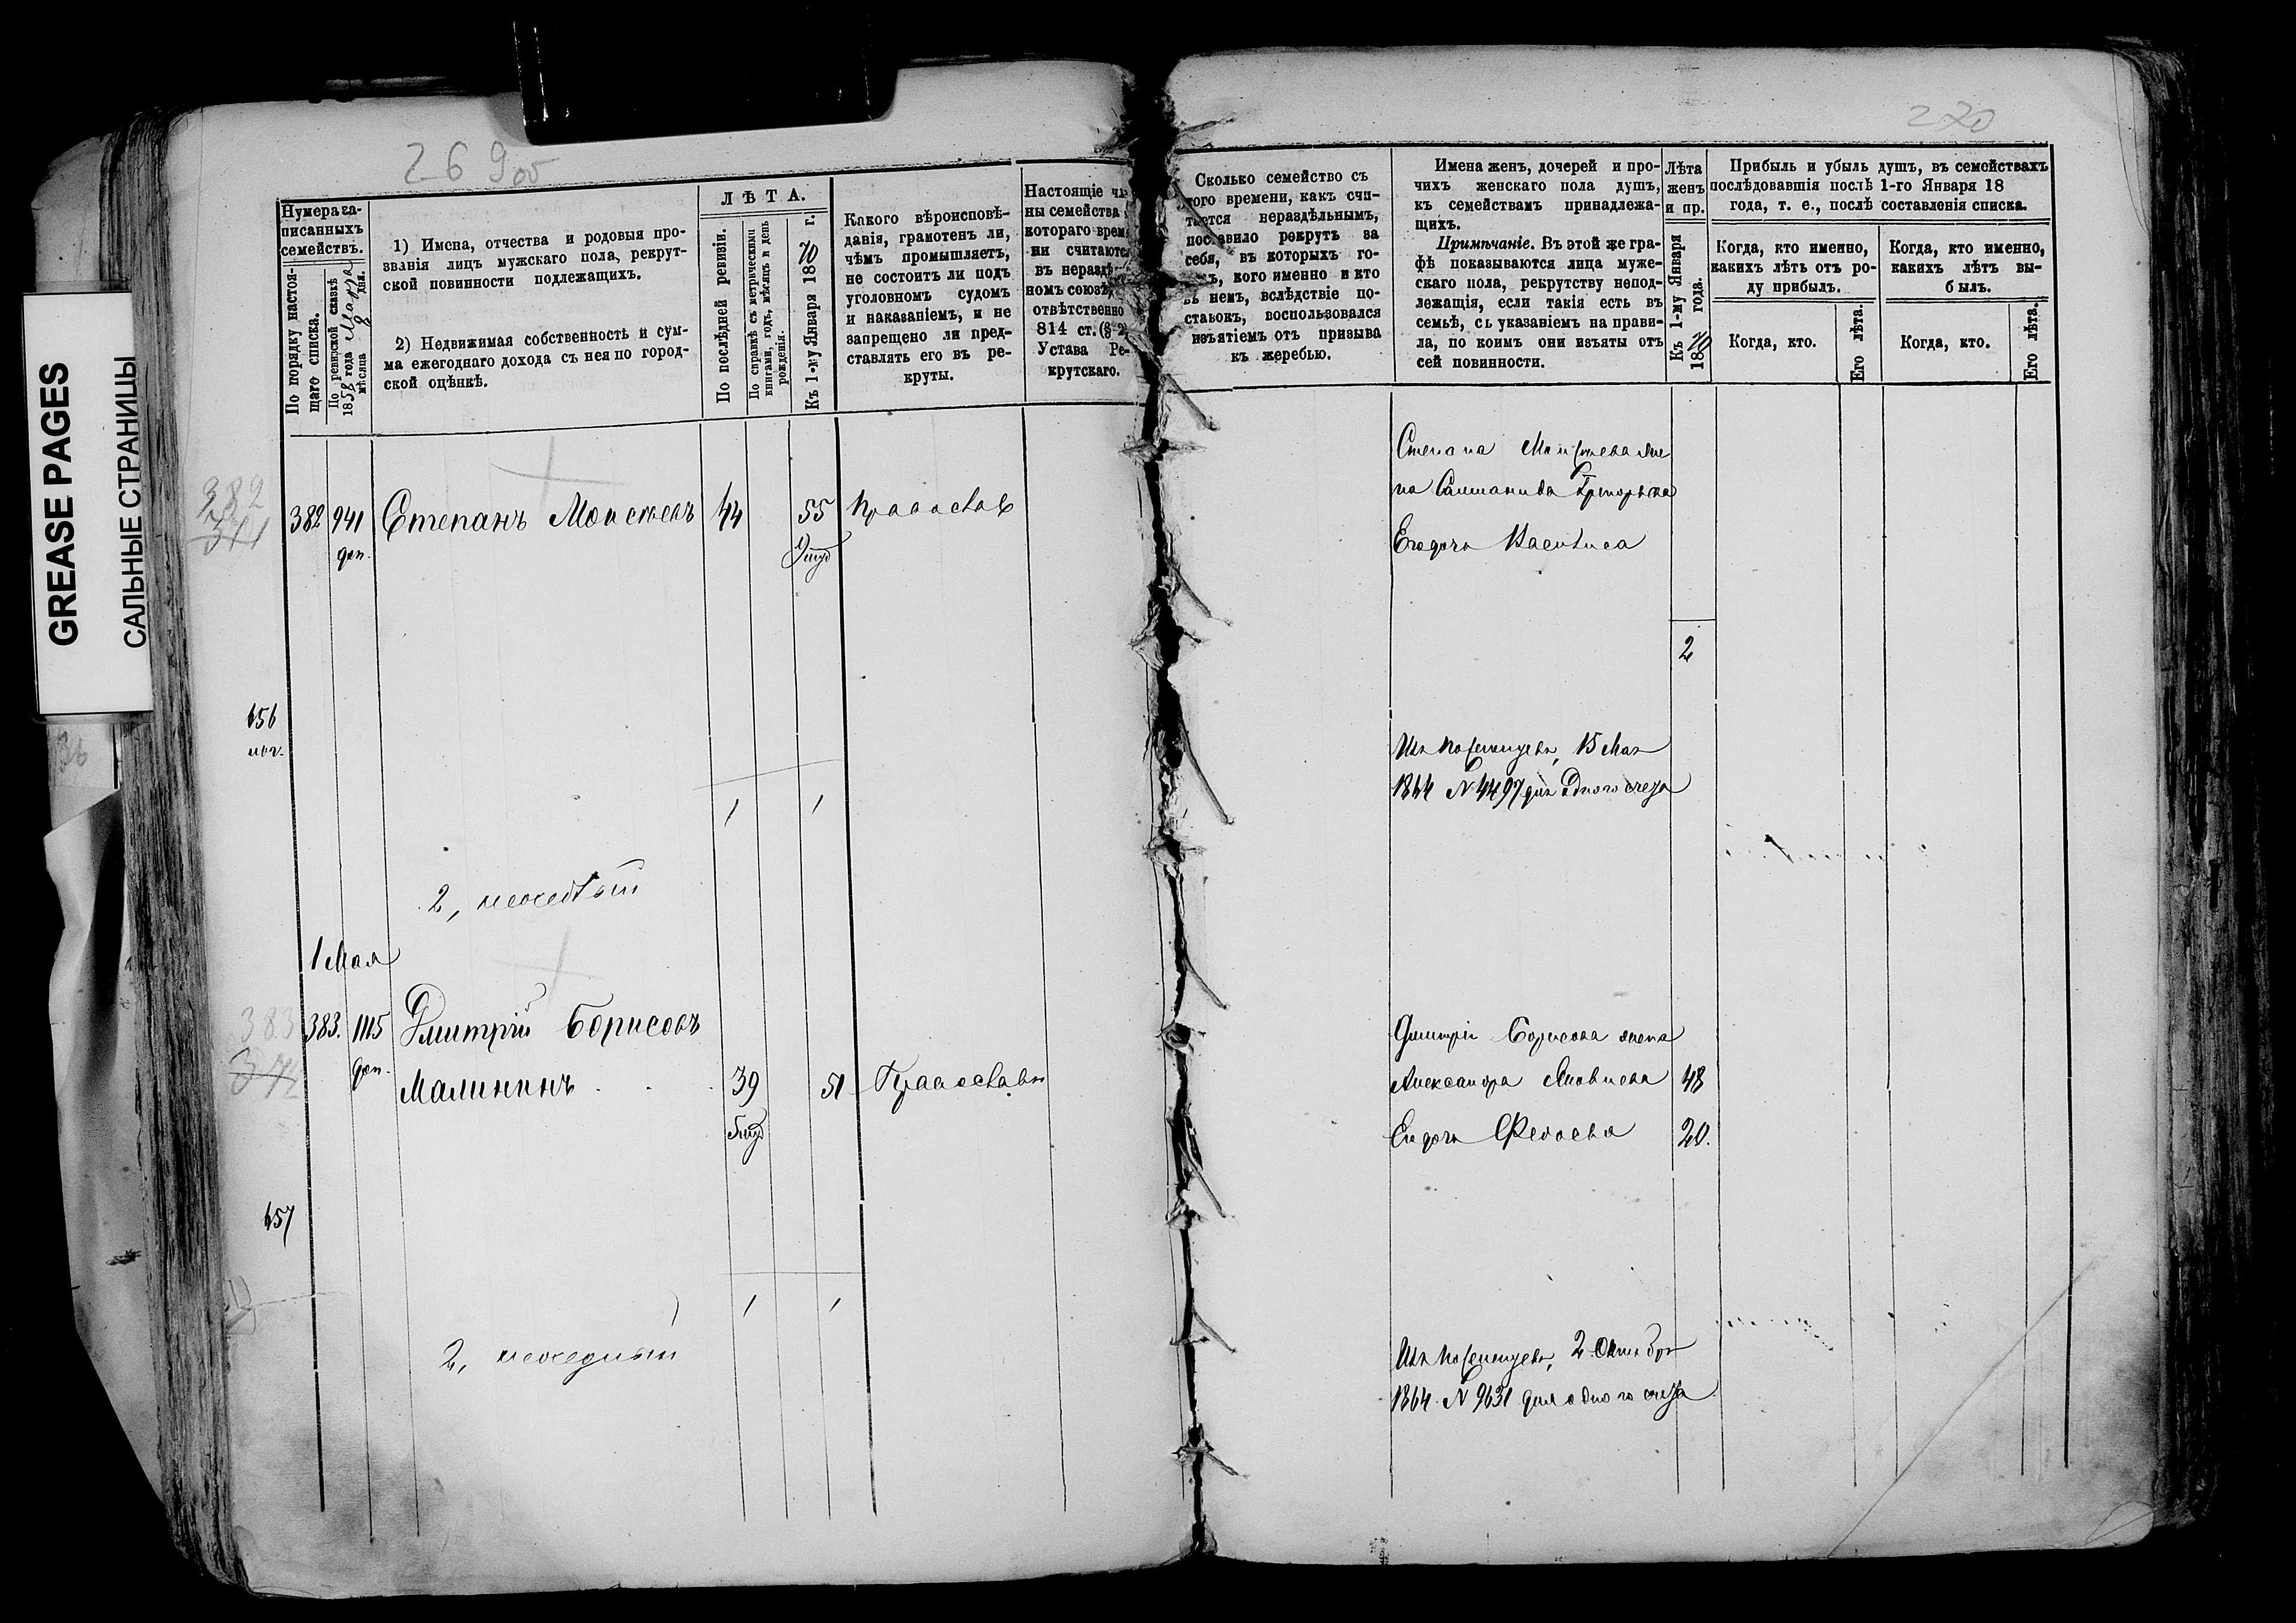 GREASE PAGES
САЛЬНЫЕ СТРАНИЦЫ
269 об
Нумера за-
писанныхъ
семействъ.
По порядку настоя-
щаго списка.
По ревизской сказкѣ
1858 года Марта
мѣсяца 8 дня.
1) Имена, отчества и родовыя про-
званія лицъ мужскаго пола, рекрут-
ской повинности подлежащихъ.
2) Недвижимая собственность и сум-
ма ежегоднаго дохода съ нея по город-
ской оцѣнкѣ.
ЛѢТА.
По послѣдней ревизіи.
По справкѣ съ метрическими
книгами, годъ, мѣсяцъ и день
рожденія.
Къ 1-му Января 1870 г.
Какого вѣроисповѣ-
данія, грамотенъ ли,
чѣмъ промышляетъ,
не состоитъ ли подъ
уголовномъ судомъ
и наказаніемъ, и не
запрещено ли пред-
ставлять его въ ре-
круты.
Настоящіе
ны семейства
котораго врем
ни считаютс
въ неразд
номъ союзѣ,
отвѣтственно
814 ст. (§ 2
Устава Ре-
крутскаго.
382
382 941 Степанъ Моисеевъ 44 55 Православ
доп.
656
1 1
2,
1 Мая
383
383. 1115 Дмитрій Борисовъ
доп. Малининъ 39 51 Православн
657
1 1
2,
220
Сколько семейство съ
того времени, какъ счи-
тается нераздѣльнымъ,
поставило рекрутъ за
себя, въ которыхъ го-
кого именно и кто
въ немъ, вслѣдствіе по-
ставокъ, воспользовался
изъятіемъ отъ призыва
къ жеребью.
Имена женъ, дочерей и про-
чихъ женскаго пола душъ,
къ семействамъ принадлежа-
щихъ.
Примѣчаніе. Въ этой же гра-
фѣ показываются лица муже-
скаго пола, рекрутству непод-
лежащія, если такія есть въ
семьѣ, съ указаніемъ на прави-
ла, по коимъ они изъяты отъ
сей повинности.
Лѣта
женъ
и пр.
Къ 1-му Января
1870 года.
Прибыль и убыль душъ, въ семействахъ
послѣдовавшія послѣ 1-го Января 18
года, т. е., послѣ составленія списка.
Когда, кто именно,
какихъ лѣтъ отъ ро-
ду прибылъ.
Когда, кто именно,
какихъ лѣтъ вы-
былъ.
Когда, кто.
Его лѣта.
Когда, кто.
Его лѣта.
Степана Моисеева же
на Григорьева
Его дочь Василиса
2
15 Мая
1864 N 4497 для одного счета
Дмитрія Борисова жена
Александра Яковлева 48
Ея дочь 20.
2 Октября
1864 N 9631 для одного счета